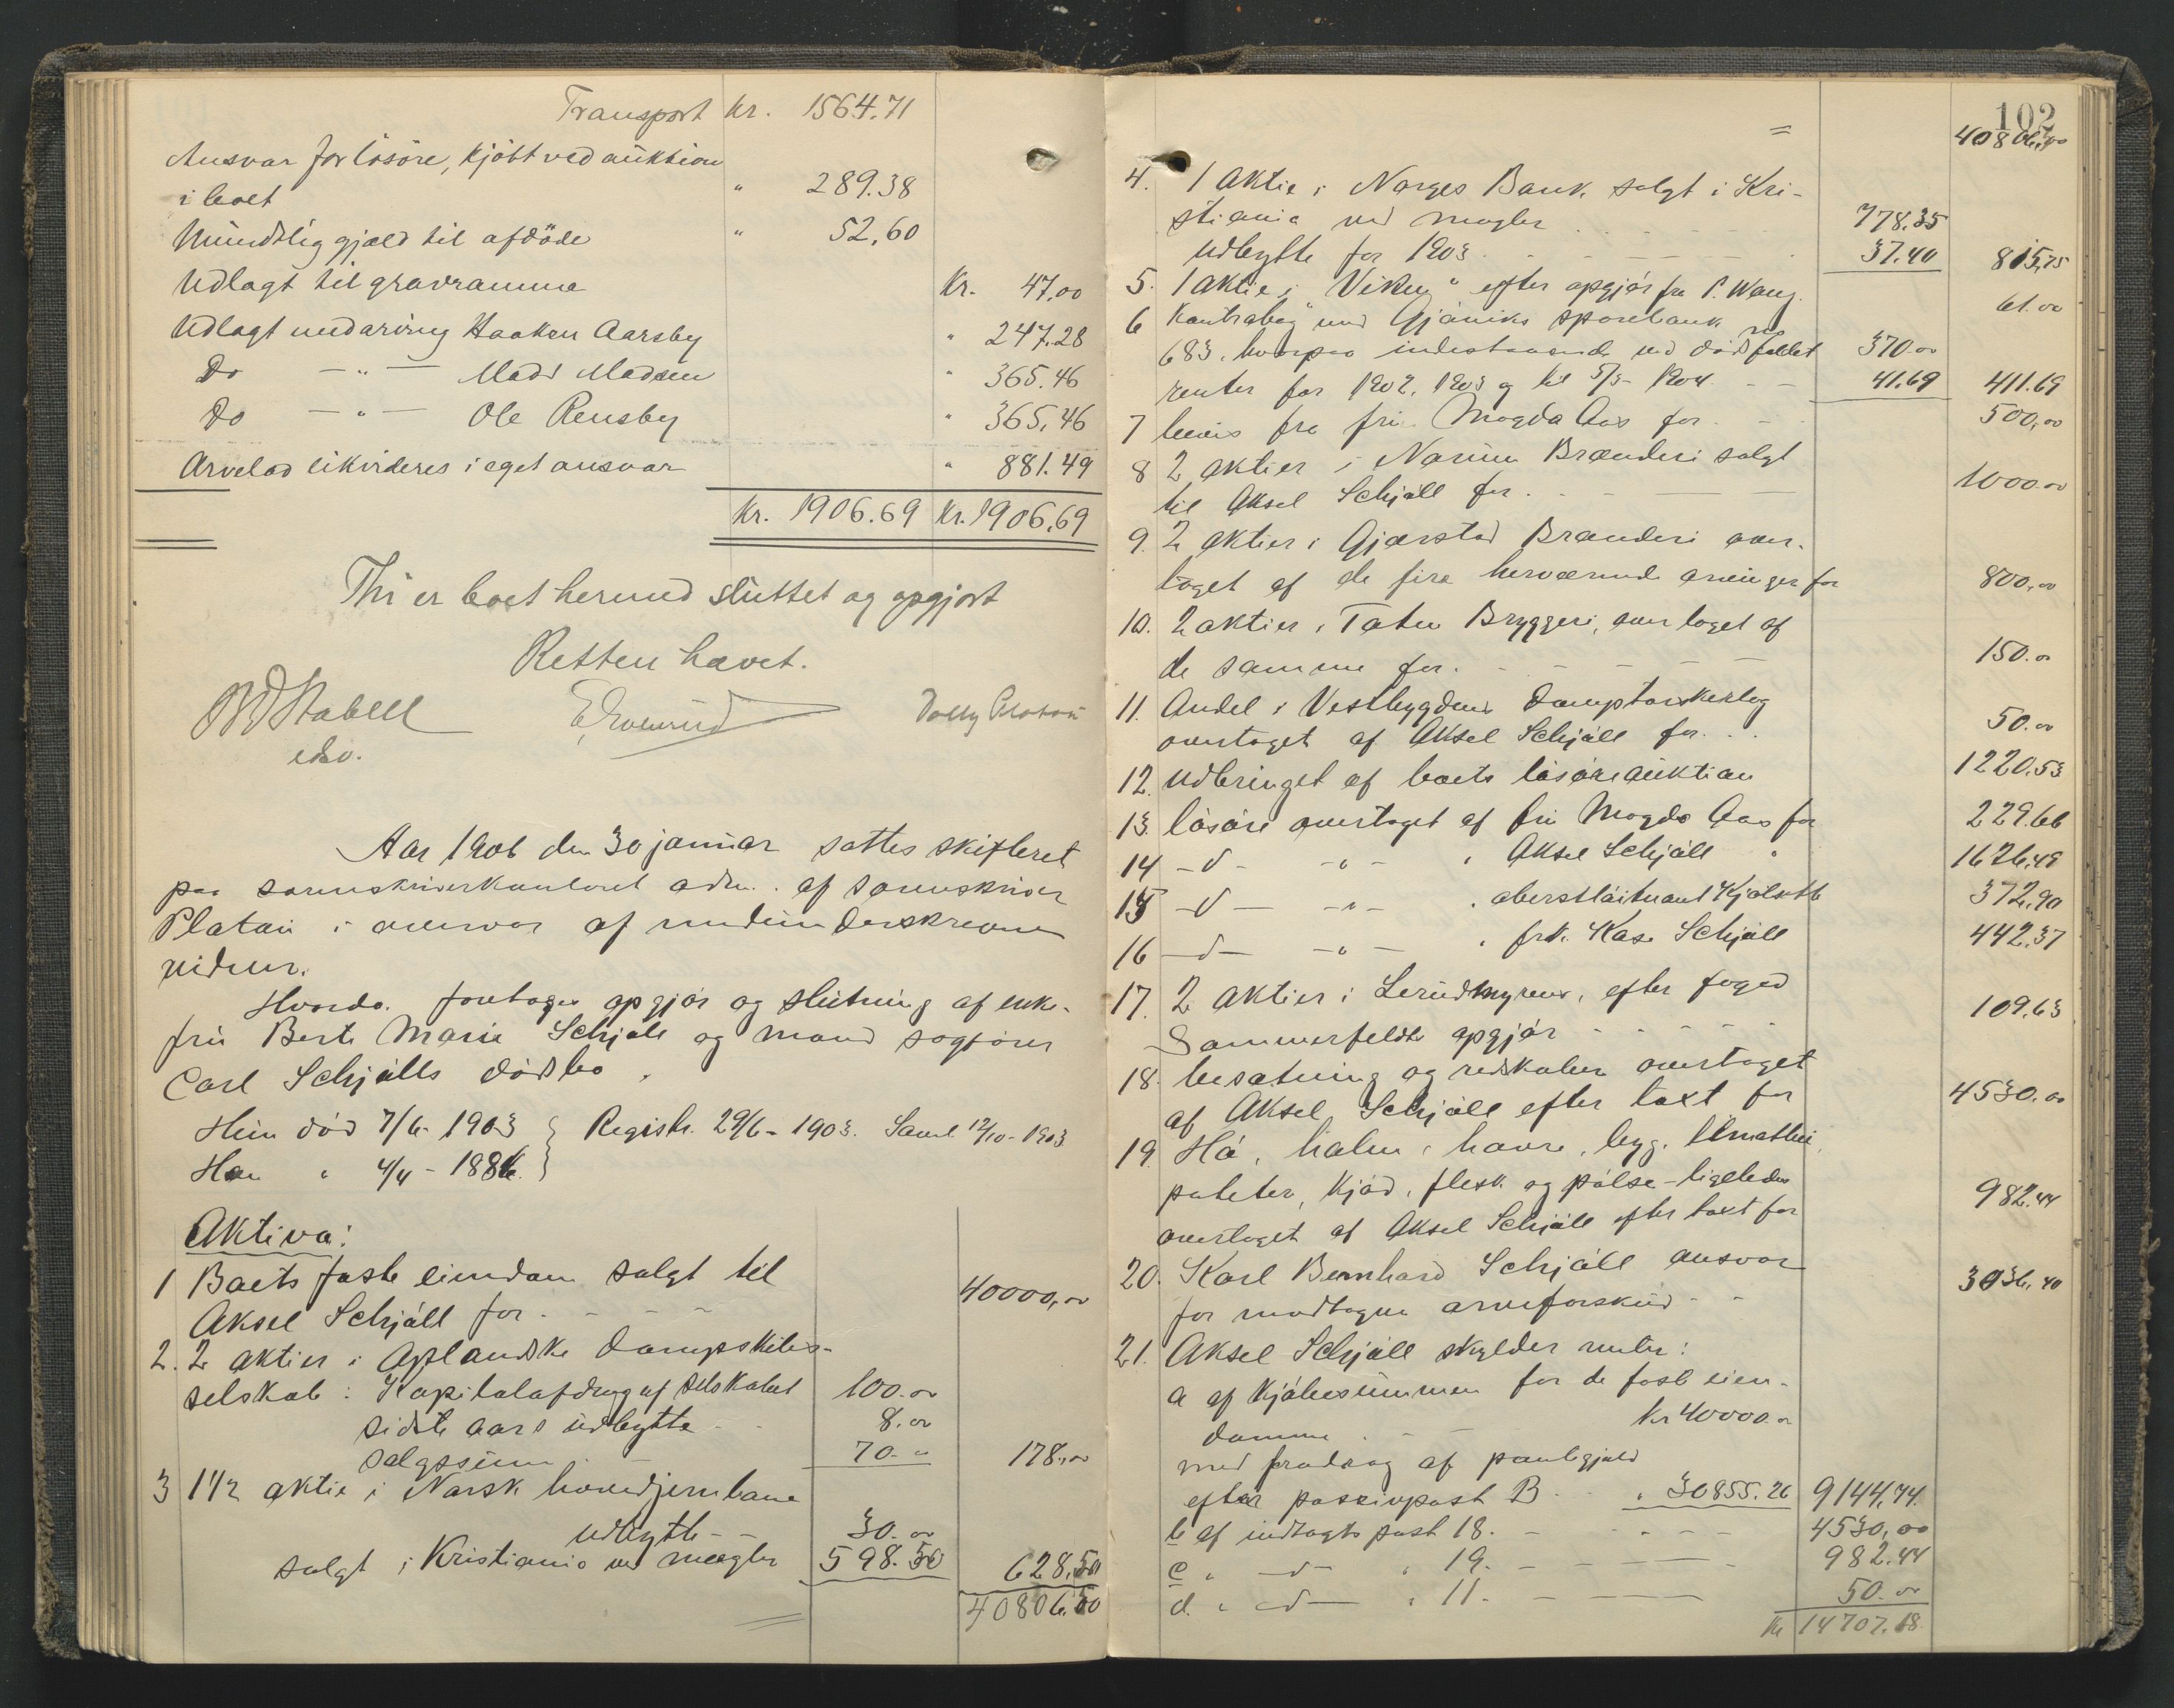 Transport kr. 1564.71
Ansvar for lösöre, kjöbt ved auktion
i boet " 289.38
Mundtlig gjæld til afdöde " 52,60
Udlagt til gravramme Kr. 47,00
Udlagt medarving Haaken Aarsby " 247.28
Do — " — Mads Madsen " 365.46
Do — " — Ole Rensby " 365,46
Arvelod likvideres i eget ansvar " 881.49
Kr. 1906.69 Kr. 1906,69
Thi er boet hermed sluttet og opgjort
Retten hævet.
Stabell Dolly Platou
edsv.
Aar 1906 den 30 januar sattes skifteret
paa sorenskriverkontoret adm. af sorenskriver
Platou i overvær af medunderskrevne
vidner.
Hvorda. foretoges opgjör og slutning af enke-
fru Berte Marie Schjöll og mand sagförer
Carl Schjölls dödsbo.
Hun död 7/6 - 1903 } Registr. 29/6 - 1903. Saml 12/10 - 1903
Han " 4/4 - 1886. }
Aktiva:
1 Boets faste eiendom solgt til
Aksel Schjöll for - - - - 40000,00
2. 2 aktier i Oplandske Dampskibs-
selskab: Kapitalafdrag af selskabet 100.00
sidste aars udbytte - - 8.00
salgssum 70.00 178.00
3 1 1/2 aktie i Norsk hovedjernbane
udbytte - - 30.00
solgt i Kristiania ved mægler 598.50 628,50
40806,50
=
102
= 40806,50
4. 1 aktie i Norges Bank solgt i Kri-
stiania ved mægler . . . . . 778.35
Udbytte for 1903 . . . . . 37.40 815,75
5. 1 aktie i "Viken" efter opgjör fra P. Wang. 61.00
6 Kontrabog med Gjöviks sparebank no
683, hvorpaa indestaaende ved dödsfaldet 370.00
renter for 1902, 1903 og til 5/3 - 1904. - - 41.69 411.69
7 bevis fra fru Magda Aas for - - 500,00
8 2 aktier i Brænderi solgt
til Aksel Schjöll for . - - - 1000.00
9. 2 aktier i Gjærstad Brænderi over-
taget af de fire herværende arvinger for 800,00
10. 2 aktier i Toten Bryggeri, overtaget af
de samme for. - - - - - 150.00
11. Andel i Vestbygdens Damptærskelag
overtaget af Aksel Schjöll for. . . 50.00
12. Udbringet af boets lösöreauktion 1220.53
13. lösöre overtaget af fru Magda Aas for 229.66
14 - d - - " - " Aksel Schjöll " 1626.48
15 - d - - " - " oberstlöitnant Kjölseth 372.90
16 - d - - " - " frk. Kaia Schjöll 442.37
17. 2 aktier i Lerudmyrens, efter foged
Sommerfeldts opgjör - - - - - 109.63
18. besætning og redskaber overtaget
af Aksel Schjöll efter taxt for 4530.00
19. Hö, halm, havre, byg,
poteter, kjöd, flesk og pölse - ligeledes
overtaget af Aksel Schjöll efter taxt for 982.44
20. Karl Bernhard Schjöll ansvar
for modtagen arveforskud - - 3036,40
21. Aksel Schjöll skylder renter:
a af kjöbesummen for de faste eien-
domme . - - Kr 40000.00
med fradrag af pantegjæld
efter passivpost B - " 30855.26 9144,74.
b af indtægts post 18. - - - - 4530,00
c " - d - " 19. - - - - 982.44
d. " - d - " 11. - - - 50.00
Kr 14707.18